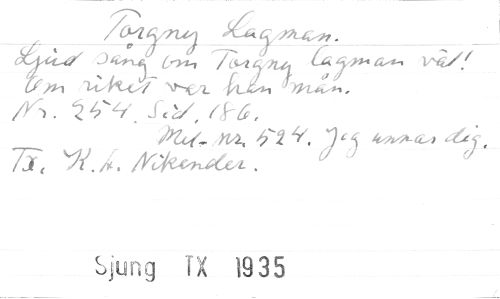 Torgny Lagman.
Ljud sång om Torgny lagman väl!
Om riket var han mån.
Nr. 254. Sid. 186.
Mel. nr. 524. Jag unnar dig.
Tx. K. A. Nikander.
Sjung TX 1935